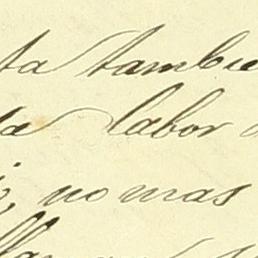 ta tambie
da labor
no mas